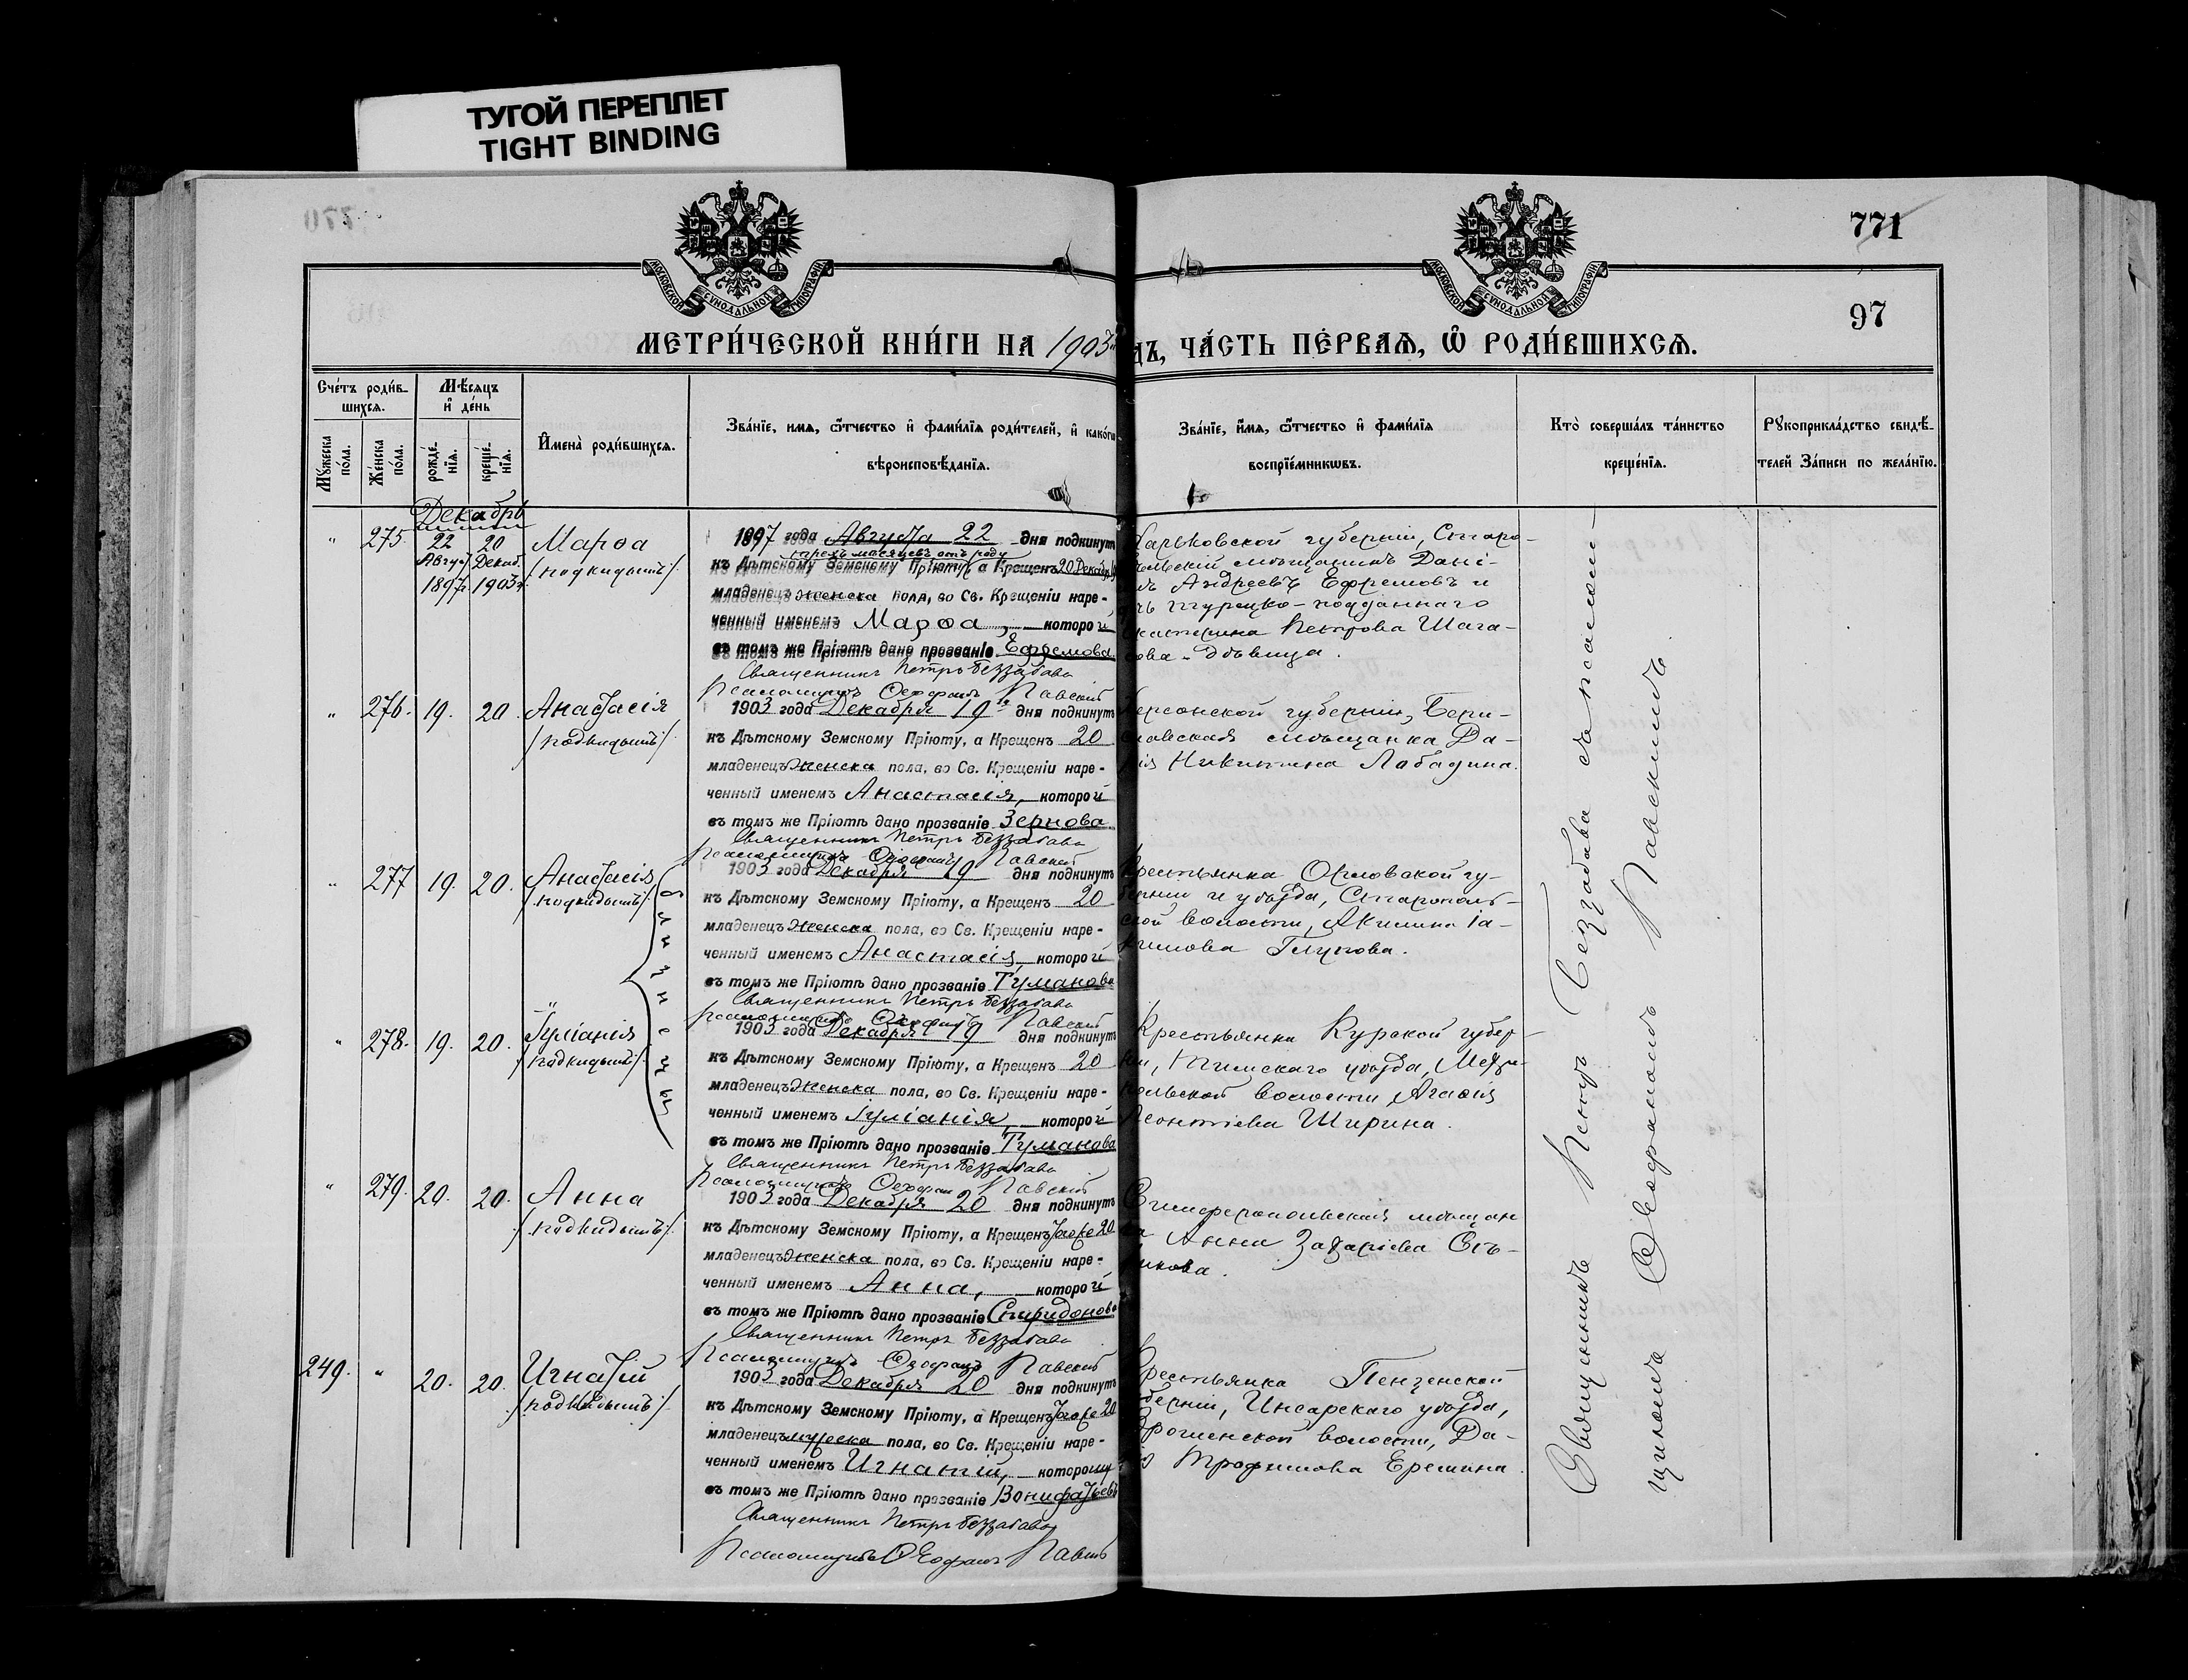 ТУГОЙ ПЕРЕПЛЕТ
TIGHT BINDING
771
97
МОСКОВСКОЙ СѴНОДАЛЬНОЙ ТИПОГРАФІИ
МОСКОВСКОЙ СѴНОДАЛЬНОЙ ТИПОГРАФІИ
МЕТРИ́ЧЕСКОЙ КНИ́ГИ НА 1903й
ДЪ, ЧА́СТЬ ПЕ́РВАЯ, Ѡ РОДИ́ВШИХСЯ.
Сче́тъ роди́в-
шихся.
Мꙋжеска по́ла.
Же́нска по́ла.
Мѣ́сяцъ
и де́нь
рожде́-
нїя.
креще́-
нїя.
Имена̀ роди́вшихся.
Зва́нїе, имя, ѻтчество и фами́лїя роди́телей, и како́гѡ
вѣроисповѣ́данїя.
Зва́нїе, имя, ѻтчество и фами́лїя
воспрїе́мникѡвъ.
Кто̀ соверша́лъ та́инство
креще́нїя.
Рꙋкоприкла́дство свидѣ́-
телей За́писи по жела́нїю.
Декабрь
" 275. 22 20 Марѳа
Август Декаб.
1897г. 1903г. /подкидышъ/
1897 года Августа 22 дня подкинутъ
трехъ мѣсяцевъ отъ роду
къ Дѣтскому Земскому Пріюту, а Крещенъ 20 Декабр
младенецъ женска пола, во Св. Крещеніи наре-
ченный именемъ Марѳа, которой
въ томъ же Пріютѣ дано прозваніе Ефремова
Священникъ Петръ Беззабава
Псаломщикъ Ѳеофанъ Павскій
Харьковской губерніи, Старо-
бельскій мѣщанинъ Дані-
лъ Андреевъ Ефремовъ и
дочь турецко-подданнаго
Екатерина Петрова Шага-
ова - дѣвица.
" 276. 19. 20. Анастасія
/подкидышъ/
1903 года Декабря 19го дня подкинутъ
къ Дѣтскому Земскому Пріюту, а Крещенъ 20
младенецъ женска пола, во Св. Крещеніи наре-
ченный именемъ Анастасія, которой
въ томъ же Пріютѣ дано прозваніе Зернова
Священникъ Петръ Беззабава
Псаломщикъ Ѳеофанъ Павскій
Херсонской губерніи, Бери-
славская мѣщанка Да-
рія Никитина Лабадина.
" 277 19. 20. Анастасія
/подкидышъ/
близнецы
1903 года Декабря 19 дня подкинутъ
къ Дѣтскому Земскому Пріюту, а Крещенъ 20
младенецъ женска пола, во Св. Крещеніи наре-
ченный именемъ Анастасія, которой
въ томъ же Пріютѣ дано прозваніе Туманова
Священникъ Петръ Беззабава
Псаломщикъ Ѳеофанъ Павскій
Крестьянка Орловской гу-
берніи и уѣзда, Старополь-
ской волости, Акилина Іа-
кимова Глупова.
" 278. 19. 20. Іуліанія
/подкидышъ/
1903 года Декабря 19 дня подкинутъ
къ Дѣтскому Земскому Пріюту, а Крещенъ 20
младенецъ женска пола, во Св. Крещеніи наре-
ченный именемъ Іуліанія, которой
въ томъ же Пріютѣ дано прозваніе Туманова
Священникъ Петръ Беззабава
Псаломщикъ Ѳеофанъ Павскій
Крестьянка Курской губер-
ніи, Тимскаго уѣзда,
польской волости, Агаѳія
Леонтіева Ширина.
" 279. 20. 20. Анна
/подкидышъ/
1903 года Декабря 20 дня подкинутъ
къ Дѣтскому Земскому Пріюту, а Крещенъ тогоже 20
младенецъ женска пола, во Св. Крещеніи наре-
ченный именемъ Анна, которой
въ томъ же Пріютѣ дано прозваніе Спиридонова
Священникъ Петръ Беззабава
Псаломщикъ Ѳеофанъ Павскій
Симферопольская мѣщан
ка Анна Захаріева
249. " 20. 20. Игнатій
/подкидышъ/
1903 года Декабря 20 дня подкинутъ
къ Дѣтскому Земскому Пріюту, а Крещенъ тогоже 20
младенецъ мужеска пола, во Св. Крещеніи наре-
ченный именемъ Игнатій, которому
въ томъ же Пріютѣ дано прозваніе Вонифатьевъ
Священникъ Петръ Беззабава
Псаломщикъ Ѳеофанъ Павскій
Крестьянка Пензенской
губерніи, Инсарскаго уѣзда,
волости, Да-
рія Трофимова Еремина.
Священникъ Петръ Беззабава съ псалом-
щикомъ Ѳеофаномъ Павскимъ